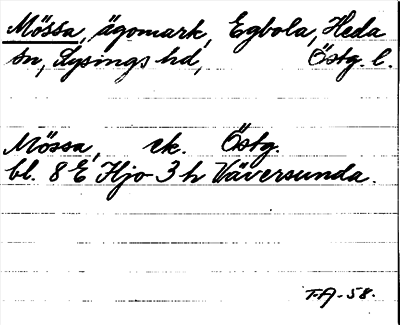 Mössa, ägomark, Egbola, Heda
sn, Lysings hd, Östg. l.
Mössa, ek. Östg.
bl. 8 E Hjo 3 h Väversunda.
T.A. -58.